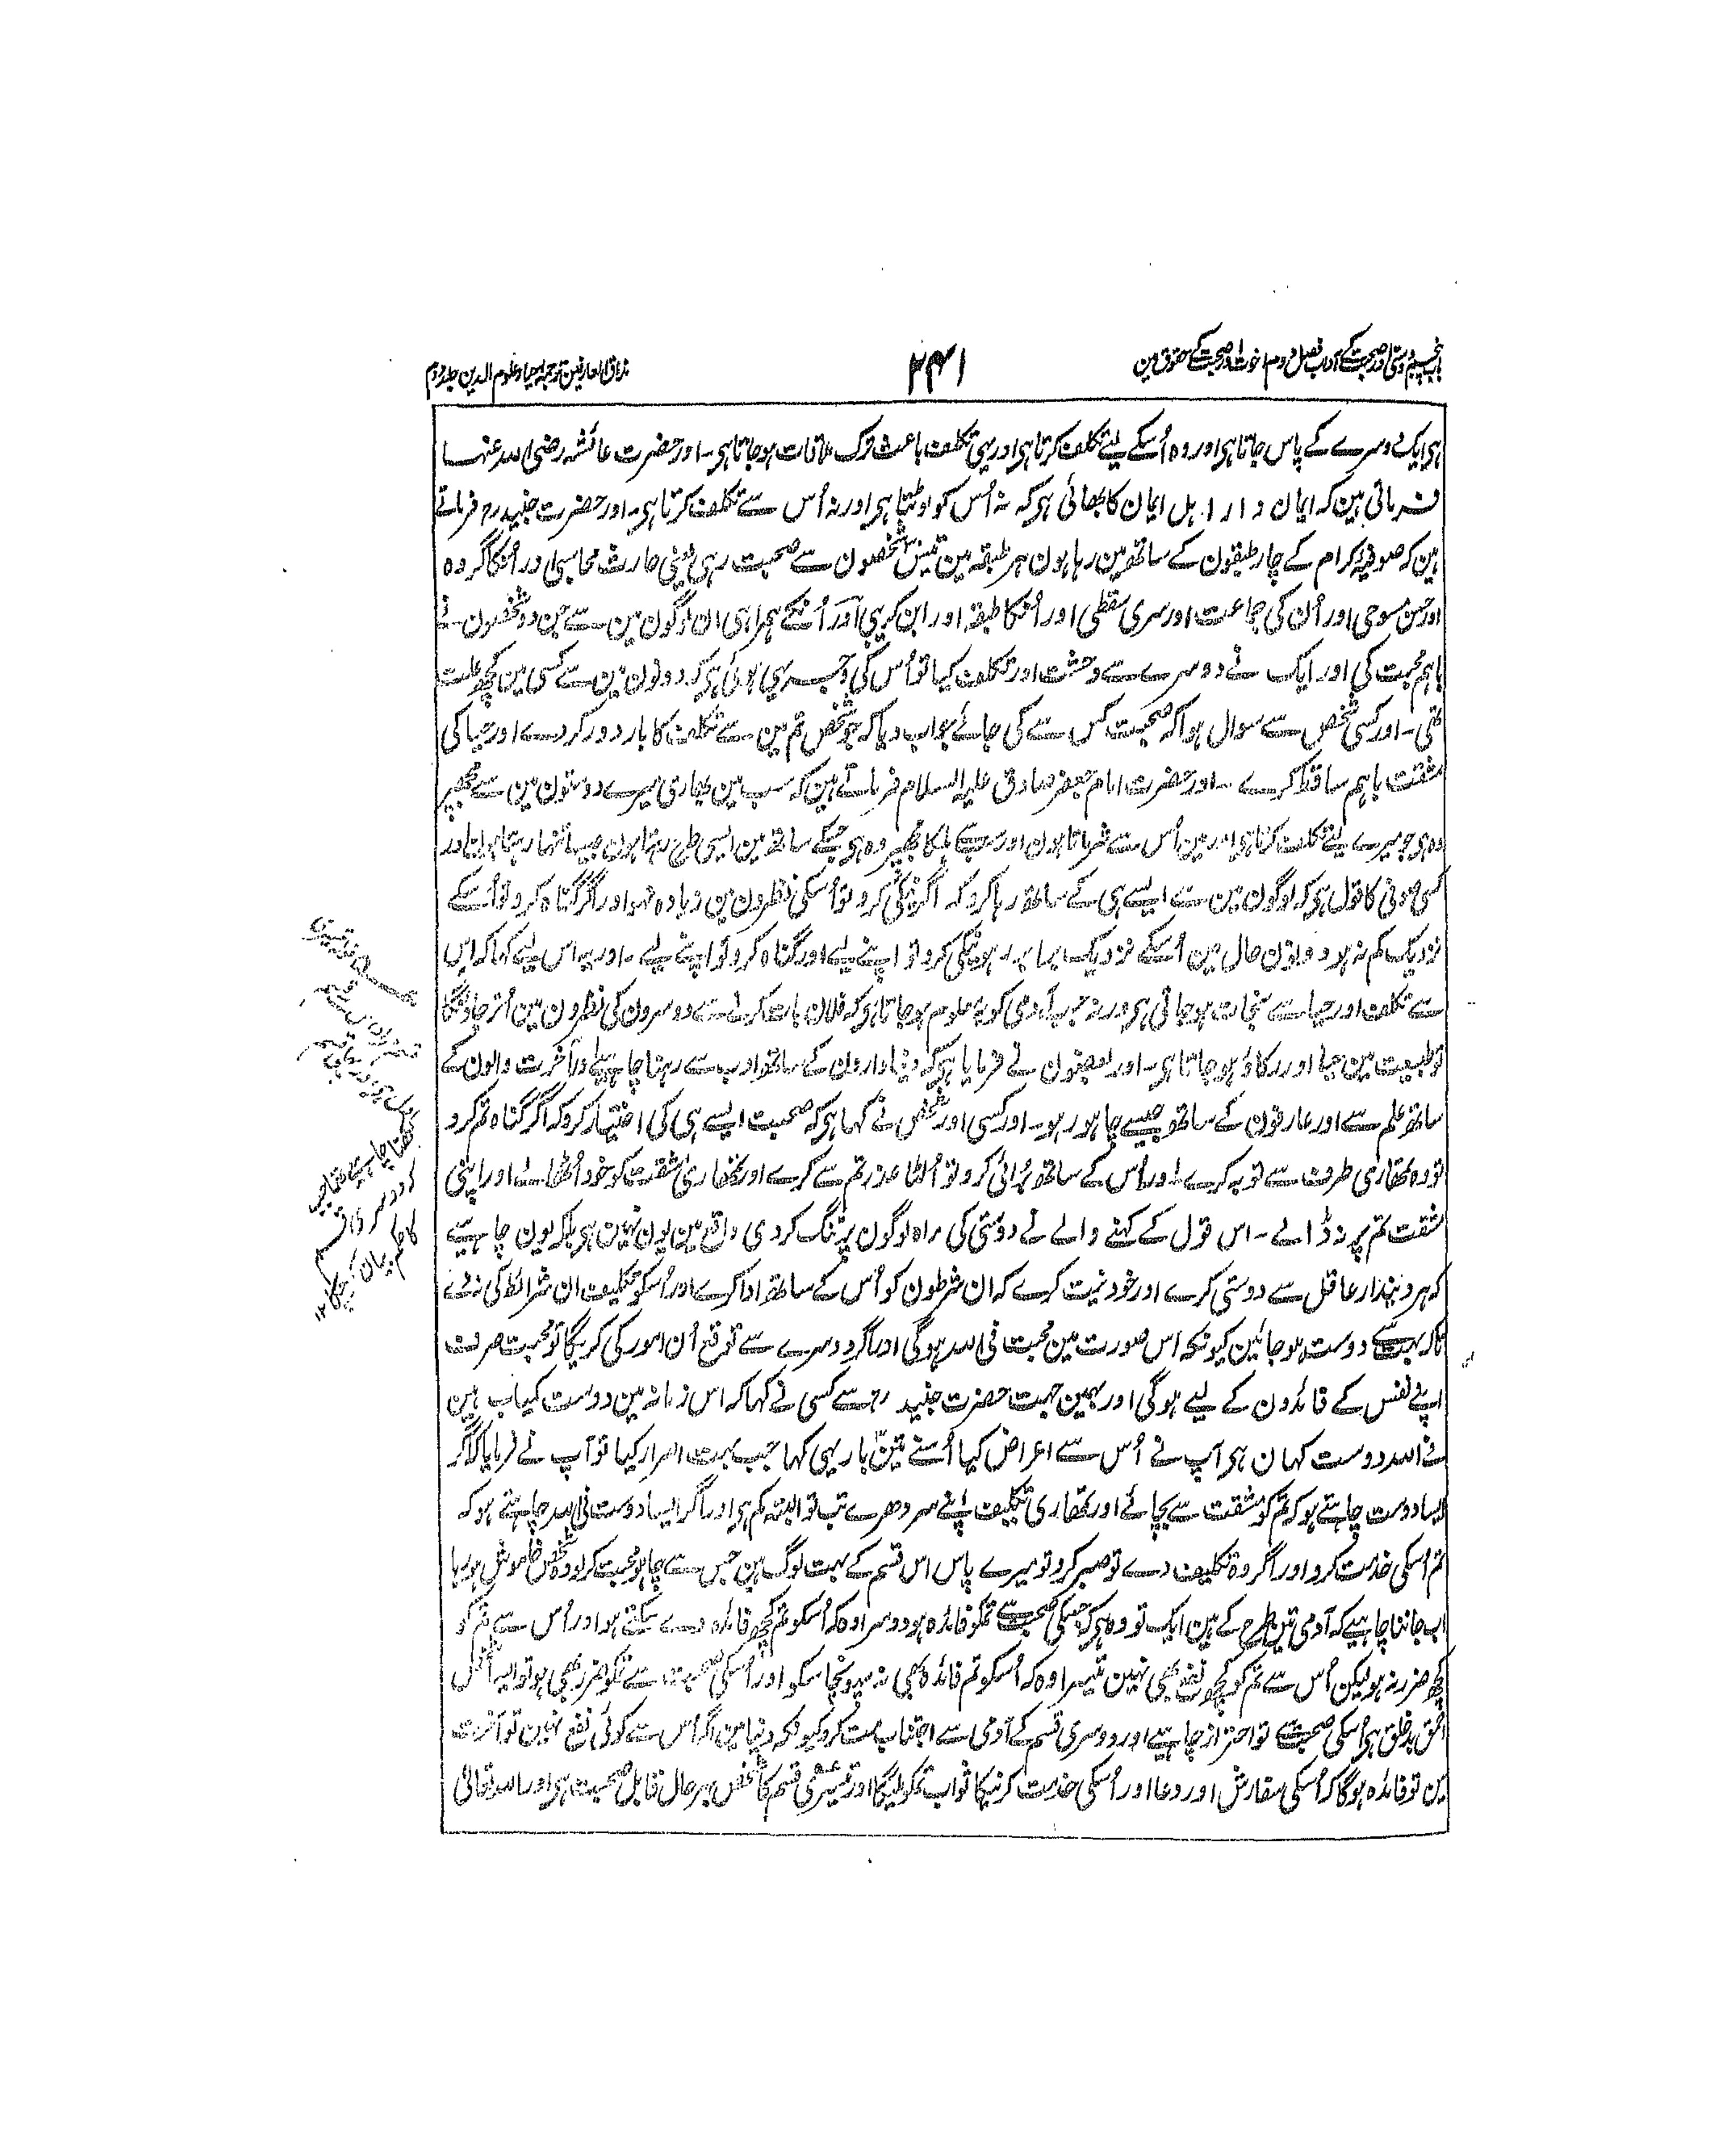 باب پنجم دوستی اور صحبت کے آداب فصل دوم اخوت اور صحبت کے حقوق مین
۲۴۱
مذاق العارفین ترجمہ احیاء علوم الدین جلد دوم
ہی ایک دوسرے کے پاس جاتا ہی اور وہ اُسکے لیے تکلف کرتا ہی اور یہی تکلف باعث ترک ملاقات ہوجاتا ہی۔ اور حضرت عائشہ رضی اللہ عنہا
فرماتی ہین کہ ایمان دار اہل ایمان کا بھائی ہی کہ نہ اُس کو لوٹتا ہی اور نہ اُس سے تکلف کرتا ہی۔ اور حضرت جنید رح فرماتے
ہین کہ صوفیہ کرام کے چار طبقون کے ساتھ مین رہا ہون ہر طبقہ مین تیس شخصون سے صحبت رہی یعنی حارث محاسبی اور اُنکا گروہ
اور حسن مسوحی اور اُن کی جماعت اور سری سقطی اور اُنکا طبقہ اور ابن کریبی اور اُنکے ہمراہی ان لوگون مین سے جن دو شخصون نے
باہم محبت کی اور ایک نے دوسرے سے وحشت اور تکلف کیا تو اُس کی وجہ یہی ہوئی ہی کہ دونون مین سے کسی مین کچھ علت
تھی۔ اور کسی شخص سے سوال ہوا کہ صحبت کس سے کی جائے جواب دیا کہ جو شخص تم مین سے تکلف کا بار دور کردے اور حیا کی
مشقت باہم ساقط کرے۔ اور حضرت امام جعفر صادق علیہ السلام فرماتے ہین کہ سب مین بھاری میرے دوستون مین سے مجھپر
وہ ہی جو میرے لیے تکلف کرتا ہی اور مین اُس سے شرماتا ہون اور سب سے ہلکا مجھپر وہ ہی جسکے ساتھ مین ایسی طرح رہتا ہون جیسا تنہا رہتا ہون اور
کسی صوفی کا قول ہی کہ لوگون مین سے ایسے ہی کے ساتھ رہا کرو کہ اگر نیکی کرو تو اُسکی نظرون مین زیادہ نہو اور اگر گناہ کرو تو اُسکے
نزدیک کم نہ ہو دونون حال مین اُسکے نزدیک برابر ہو نیکی کرو تو اپنے لیے اور گناہ کرو تو اپنے لیے۔ اور یہ اس لیے کہا کہ اس
سے تکلف اور حیا سے نجات ہوجاتی ہی ورنہ جب آدمی کو یہ معلوم ہوجاتا ہی کہ فلان بات کرنے سے دوسرون کی نظرون مین اُتر جاؤنگا
تو طبیعت مین حیا اور رکاؤ ہوجاتا ہی۔ اور بعضون نے فرمایا ہی کہ دنیادارون کے ساتھ ادب سے رہنا چاہیے اور آخرت والون کے
ساتھ علم سے اور عارفون کے ساتھ جیسے چاہو رہو۔ اور کسی اور شخص نے کہا ہی کہ صحبت ایسے ہی کی اختیار کرو کہ اگر گناہ تم کرو
تو وہ تمھاری طرف سے توبہ کرے اور اُس کے ساتھ بُرائی کرو تو اُلٹا عذر تم سے کرے اور تمھاری مشقت کو خود اُٹھائے اور اپنی
مشقت تم پر نہ ڈالے۔ اس قول کے کہنے والے نے دوستی کی راہ لوگون پر تنگ کردی واقع مین یون نہین ہی بلکہ یون چاہیے
کہ ہر دیندار عاقل سے دوستی کرے اور خود نیت کرے کہ ان شرطون کو اُس کے ساتھ ادا کرے اور اُسکو تکلیف ان شرائط کی نہ دے
تاکہ بہت سے دوست ہوجائین کیونکہ اس صورت مین محبت فی اللہ ہوگی اور اگر دوسرے سے توقع اُن امور کی کریگا تو محبت صرف
اپنے نفس کے فائدون کے لیے ہوگی اور بہمین جہت حضرت جنید رح سے کسی نے کہا کہ اس زمانہ مین دوست کمیاب ہین
فی اللہ دوست کہان ہی آپ نے اُس سے اعراض کیا اُسنے تین بار یہی کہا جب بہت اصرار کیا تو آپ نے فرمایا کہ اگر
ایسا دوست چاہتے ہو کہ تم کو مشقت سے بچائے اور تمھاری تکلیف اپنے سر دھرے تب تو البتہ کم ہی اور اگر ایسا دوست فی اللہ چاہتے ہو کہ
تم اُسکی خدمت کرو اور اگر وہ تکلیف دے تو صبر کرو تو میرے پاس اس قسم کے بہت لوگ ہین جس سے چاہو محبت کرلو وہ شخص خاموش ہو رہا
اب جاننا چاہیے کہ آدمی تین طرح کے ہین ایک تو وہ ہی کہ جسکی صحبت سے تمکو فائدہ ہو دوسرا وہ کہ اُسکو تم کچھ فائدہ دے سکتے ہو اور اُس سے تم کو
کچھ ضرر نہ ہو لیکن اُس سے تم کو کچھ نفع بھی نہین تیسرا وہ کہ اُسکو تم فائدہ بھی نہ پہونچا سکو اور اُسکی صحبت سے تمکو ضرر بھی ہو تو ایسا شخص
احمق بدخلق ہی اُسکی صحبت سے تو احتراز چاہیے اور دوسری قسم کے آدمی سے اجتناب مت کرو کیونکہ دنیا مین اگر اُس سے کوئی نفع نہین تو آخرت
مین تو فائدہ ہوگا کہ اُسکی سفارش اور دعا اور اُسکی خدمت کرنیکا ثواب تمکو ملیگا اور تیسری قسم کا شخص بہر حال قابل صحبت ہی اور اللہ تعالیٰ
لکھنا چاہیے تھا
دوسری قسم
کا حکم بیان ہوچکا ۱۲